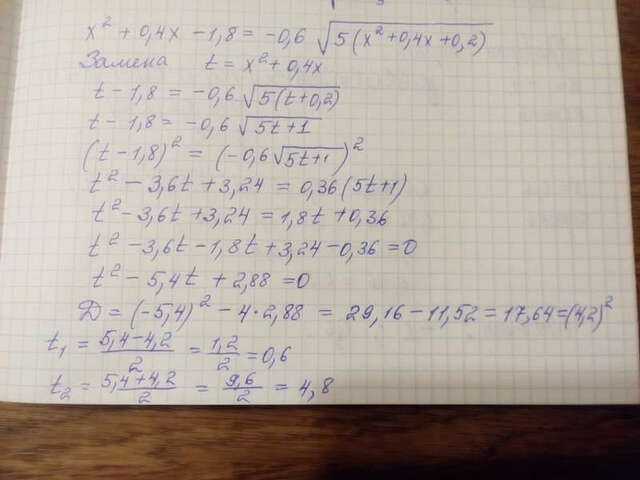 x² + 0,4x - 1,8 = -0,6 √5(x²+0,4x+0,2)
Замена t = x² + 0,4x
t - 1,8 = -0,6 √5(t+0,2)
t - 1,8 = -0,6 √5t+1
(t - 1,8)² = (-0,6√5t+1)²
t² - 3,6t + 3,24 = 0,36(5t+1)
t² - 3,6t + 3,24 = 1,8t + 0,36
t² - 3,6t - 1,8t + 3,24 - 0,36 = 0
t² - 5,4t + 2,88 = 0
Д = (-5,4)² - 4·2,88 = 29,16 - 11,52 = 17,64 = (4,2)²
t₁ = 5,4-4,2/2 = 1,2/2 = 0,6
t₂ = 5,4+4,2/2 = 9,6/2 = 4,8